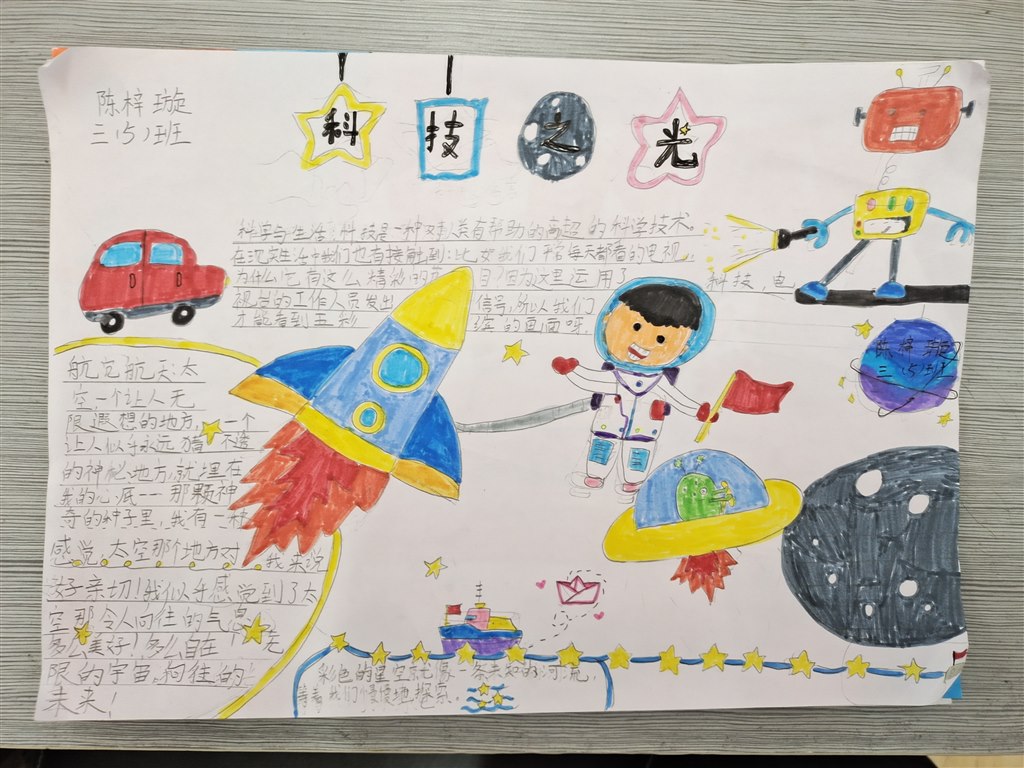 陈梓璇
三（5）班
科技之光
科学与生活：科技是一种对人类有帮助的高超的科学技术。
在现实生活中我们也有接触到：比女我们 每天都看的电视，
为什么它有这么精彩的节目？因为这里运用了科技，电
视台的工作人员发出信号，所以我们
才能看到五彩缤的画面呀
陈梓璇
三（5）班
航空航天：太
空，一个让人无
限遐想的地方，一个
让人似乎永远猜不透
的神秘地方，就埋在
我的心底——那颗神
奇的种子里，我有一种
感觉，太空那个地方对我来说
好亲切！我似乎感觉到了太
空那令人向往的气息
多么美好！多么自在！无
限的宇宙，向往的
未来！
彩色的星空就像一条未知的河流，
等着我们慢慢地探索。